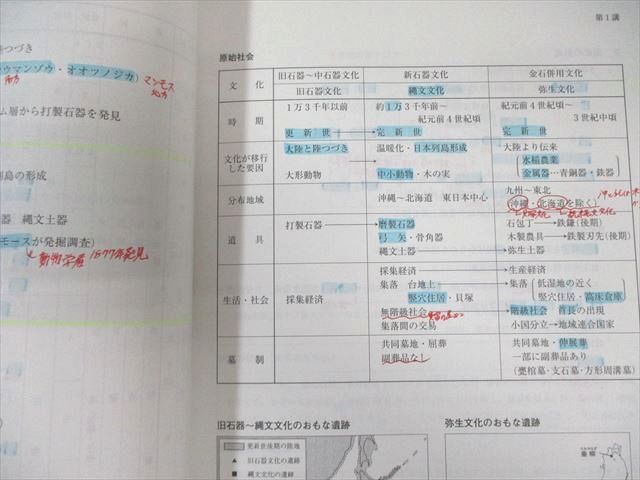 第1講
陸つづき
ウマンゾウ・オオツノジカ)
マンモス
ム層から打製石器を発見
列島の形成
器 縄文土器
モースが発掘調査)
動物学者 1877年発見
原始社会
文化 旧石器～中石器文化 新石器文化 金石併用文化
旧石器文化 縄文文化 弥生文化
時期 1万3千年以前 約1万3千年前～ 紀元前4世紀頃～
紀元前4世紀頃 3世紀中頃
更新世 完新世 完新世
文化が移行した要因 大陸と陸つづき 温暖化・日本列島形成 大陸より伝来
水稲農業
大形動物 中小動物・木の実 金属器…青銅器・鉄器
分布地域 沖縄～北海道 東日本中心 九州～東北
(沖縄・北海道を除く)
道具 打製石器 磨製石器 石包丁→鉄鎌(後期)
弓矢・骨角器 木製農具→鉄製刃先(後期)
縄文土器 弥生土器
生活・社会 採集経済 採集経済 生産経済
集落 台地上 集落 低湿地の近く
竪穴住居・貝塚 竪穴住居・高床倉庫
無階級社会 階級社会 首長の出現
集落間の交易 小国分立→地域連合国家
墓制 共同墓地・屈葬 共同墓地・伸展葬
副葬品なし 一部に副葬品あり
(甕棺墓・支石墓・方形周溝墓)
旧石器～縄文文化のおもな遺跡 弥生文化のおもな遺跡
更新世後期の陸地
▲ 旧石器文化の遺跡
■ 縄文文化の遺跡